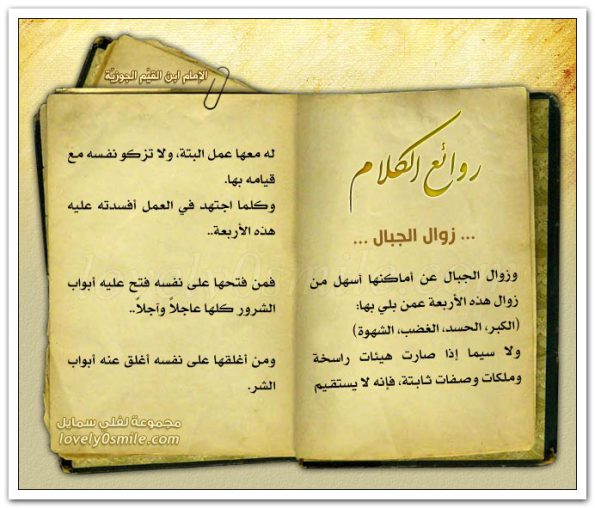 الإمام ابن القيَّم الجوزيَّة
روائع الكلام
... زوال الجبال ...
وزوال الجبال عن أماكنها أسهل من
زوال هذه الأربعة عمن بلي بها:
(الكبر، الحسد، الغضب، الشهوة)
ولا سيما إذا صارت هيئات راسخة
وملكات وصفات ثابتة، فإنه لا يستقيم
له معها عمل البتة، ولا تزكو نفسه مع
قيامه بها.
وكلما اجتهد في العمل أفسدته عليه
هذه الأربعة..
فمن فتحها على نفسه فتح عليه أبواب
الشرور كلها عاجلاً وآجلاً..
ومن أغلقها على نفسه أغلق عنه أبواب
الشر.
مجموعة لفلي سمايل
lovely0smile.com